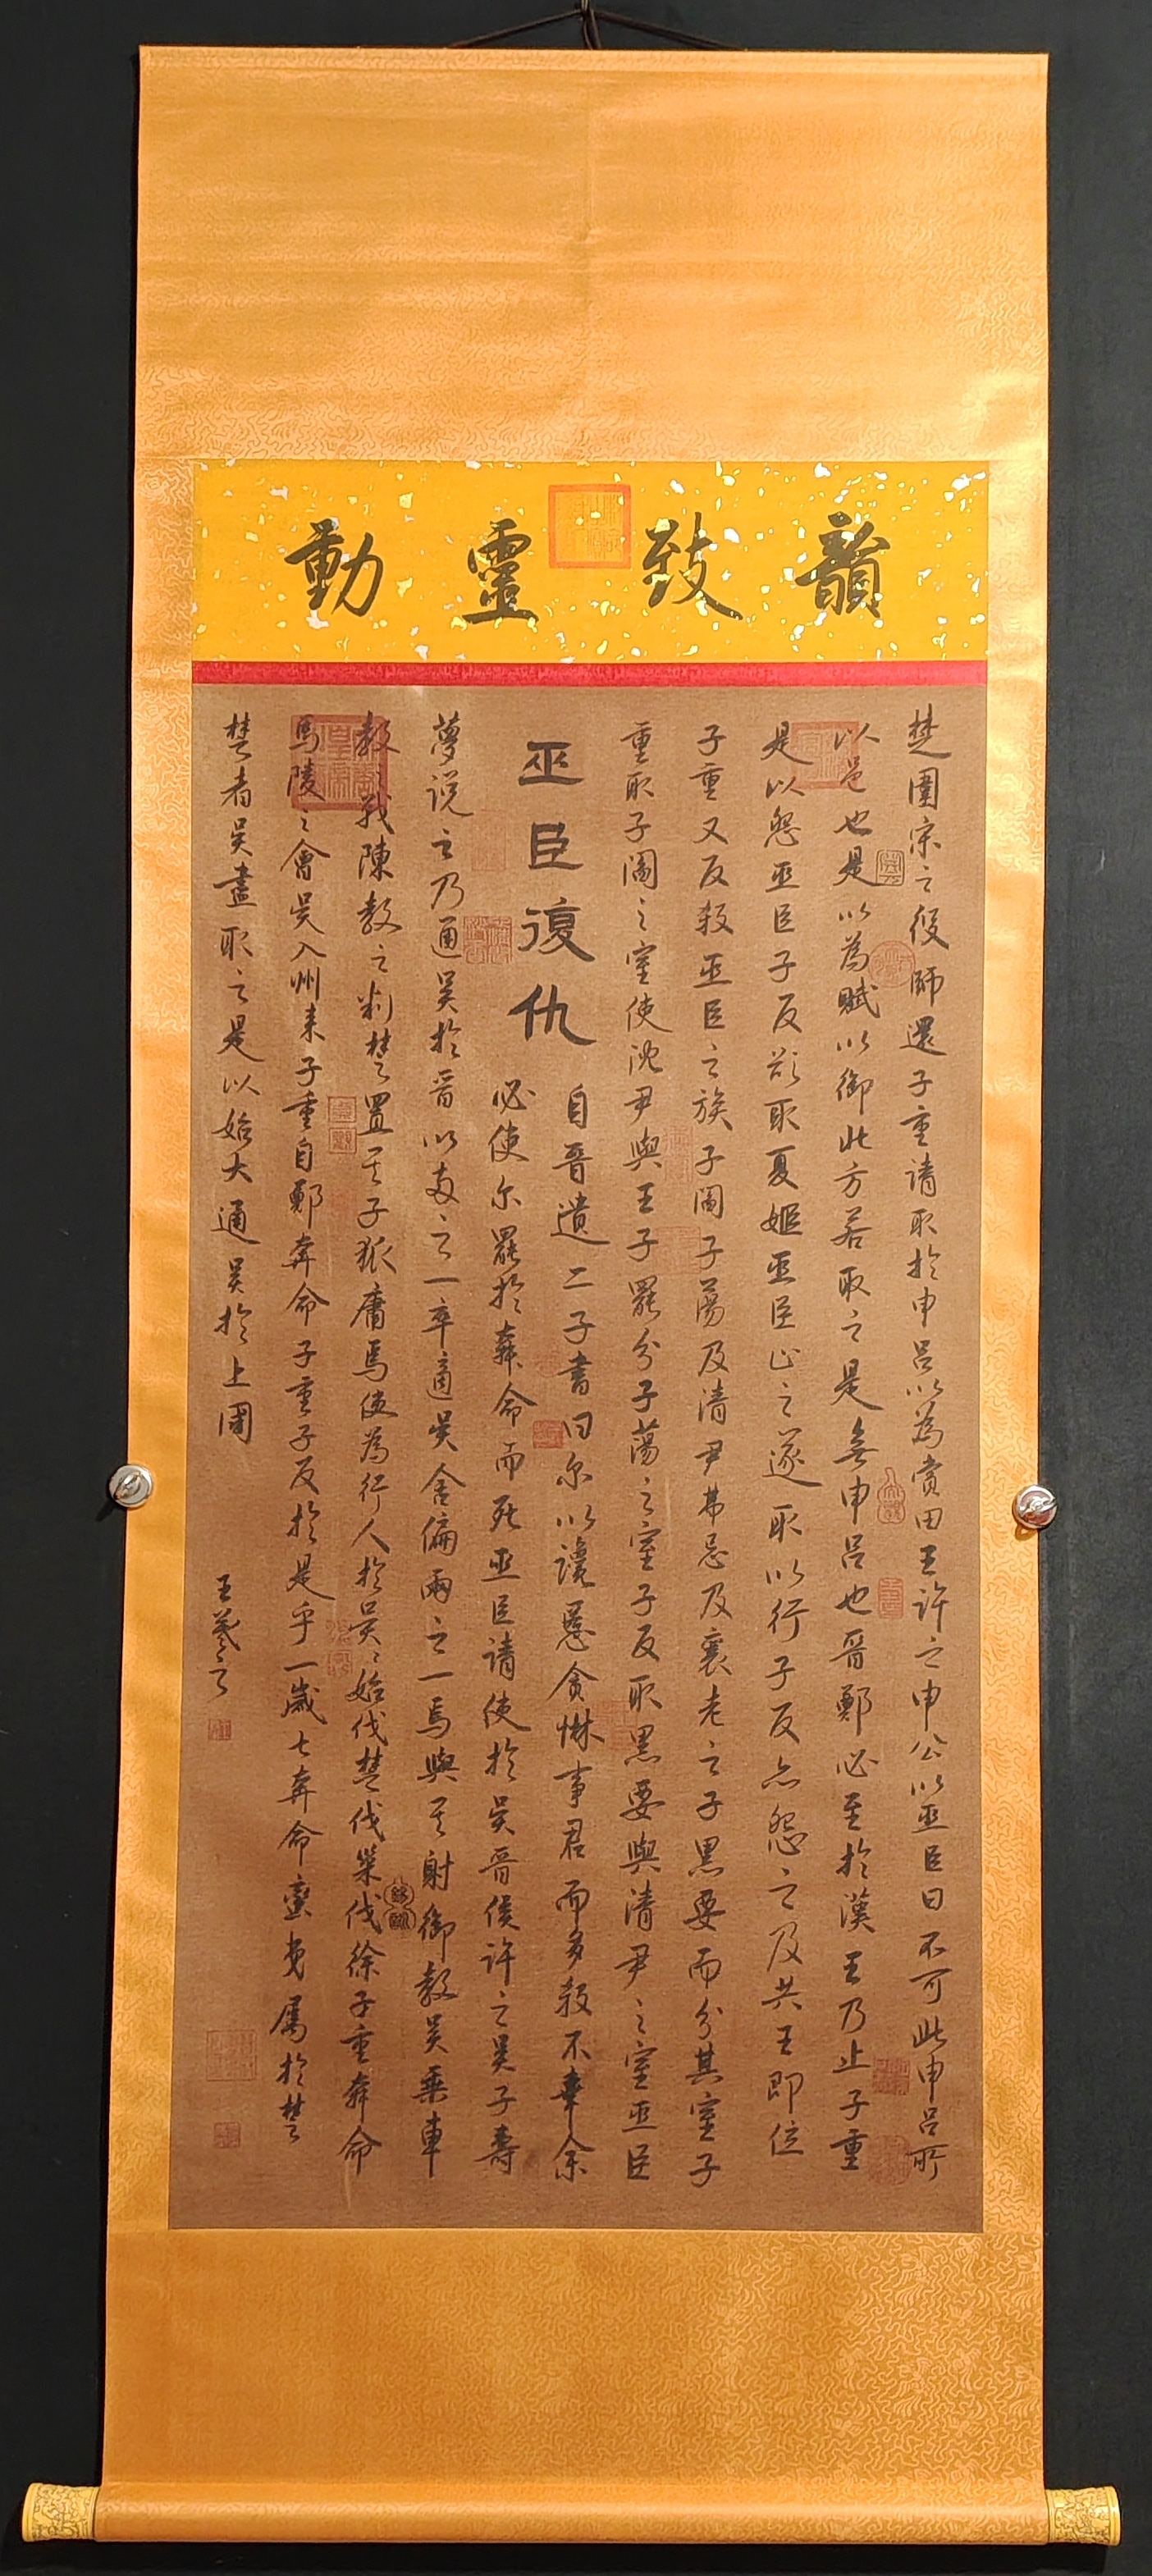 韻致靈動
楚圍宋之役師還子重請取於申呂以為賞田王許之申公以巫臣曰不可此申呂所
以邑也是以為賦以御此方若取之是無申呂也晉鄭必至於漢王乃止子重
是以怨巫臣子反欲取夏姬巫臣止之遂取以行子反亦怨之及共王即位
子重又反殺巫臣之族子閻子蕩及清尹弗忌及襄老之子黑要而分其室子
重取子閻之室使沈尹與王子罷分子蕩之室子反取黑要與清尹之室巫臣
巫臣復仇
自晉遺二子書曰尔以讒慝貪惏事君而多殺不辜余
必使尔罷於奔命而死巫臣請使於吳晉侯許之吳子壽
夢説之乃通吳於晉以兩之一卒適吳舍偏兩之一焉與其射御教吳乘車
教戰陳教之叛楚置其子狐庸焉使為行人於吳々始伐楚伐巢伐徐子重奔命
馬陵之會吳入州來子重自鄭奔命子重子反於是乎一歲七奔命蠻夷屬於楚
楚者吳盡取之是以始大通吳於上國
王羲之